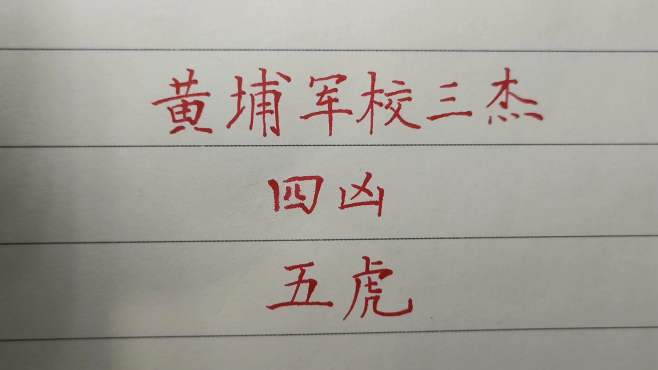 黄埔军校三杰
四凶
五虎